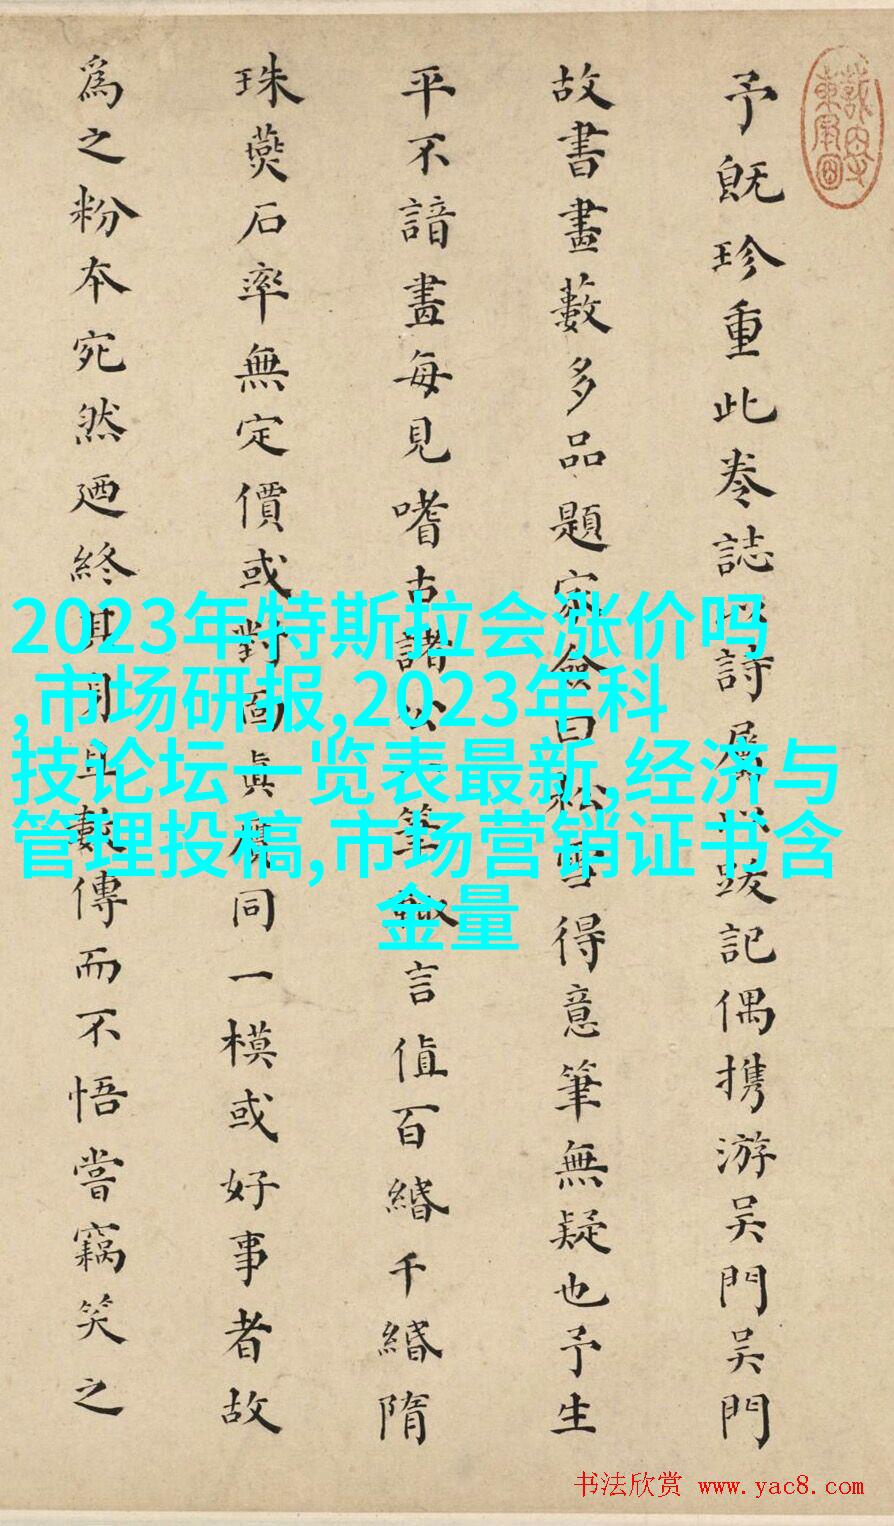 予既珍重此卷誌以詩屬跋記偶携游吳門吳門
故書畫藪多品題家僉曰松雪得意筆無疑也予生
平不諳畫每見嗜古諸公筆輙言值百緡千緡隋
珠燕石率無定價或對面真贗同一模或好事者故
為之粉本宛然廼終其且數傳而不悟嘗竊笑之
2023年特斯拉会涨价吗
,市场研报,2023年科
技论坛一览表最新,经济与
管理投稿,市场营销证书含
金量
书法欣赏 www.yac8.com